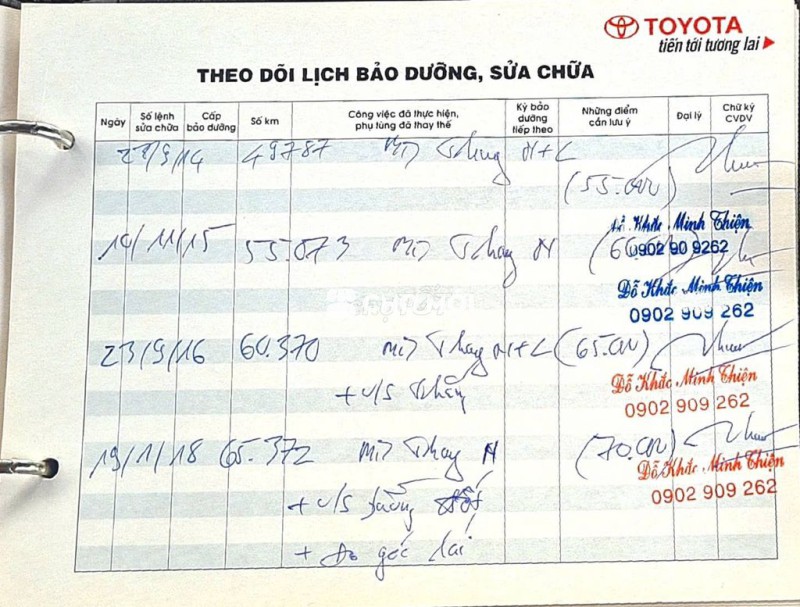 TOYOTA
tiến tới tương lai
THEO DÕI LỊCH BẢO DƯỠNG, SỬA CHỮA
Ngày Số lệnh sửa chữa Cấp bảo dưỡng Số km Công việc đã thực hiện, phụ tùng đã thay thế Kỳ bảo dưỡng tiếp theo Những điểm cần lưu ý Đại lý Chữ ký CVDV
/9/14 49787 Thay N+L
(55.000)
14/11/15 55.073 Thay N
Đỗ Khắc Minh Thiện
0902 90 9262
Đỗ Khắc Minh Thiện
0902 909 262
23/9/16 60.370 Thay N+L (65.000)
+ V/S thắng
Đỗ Khắc Minh Thiện
0902 909 262
19/1/18 65.372 Thay N (70.000)
Đỗ Khắc Minh Thiện
0902 909 262
+ V/S
+ Đo góc lái